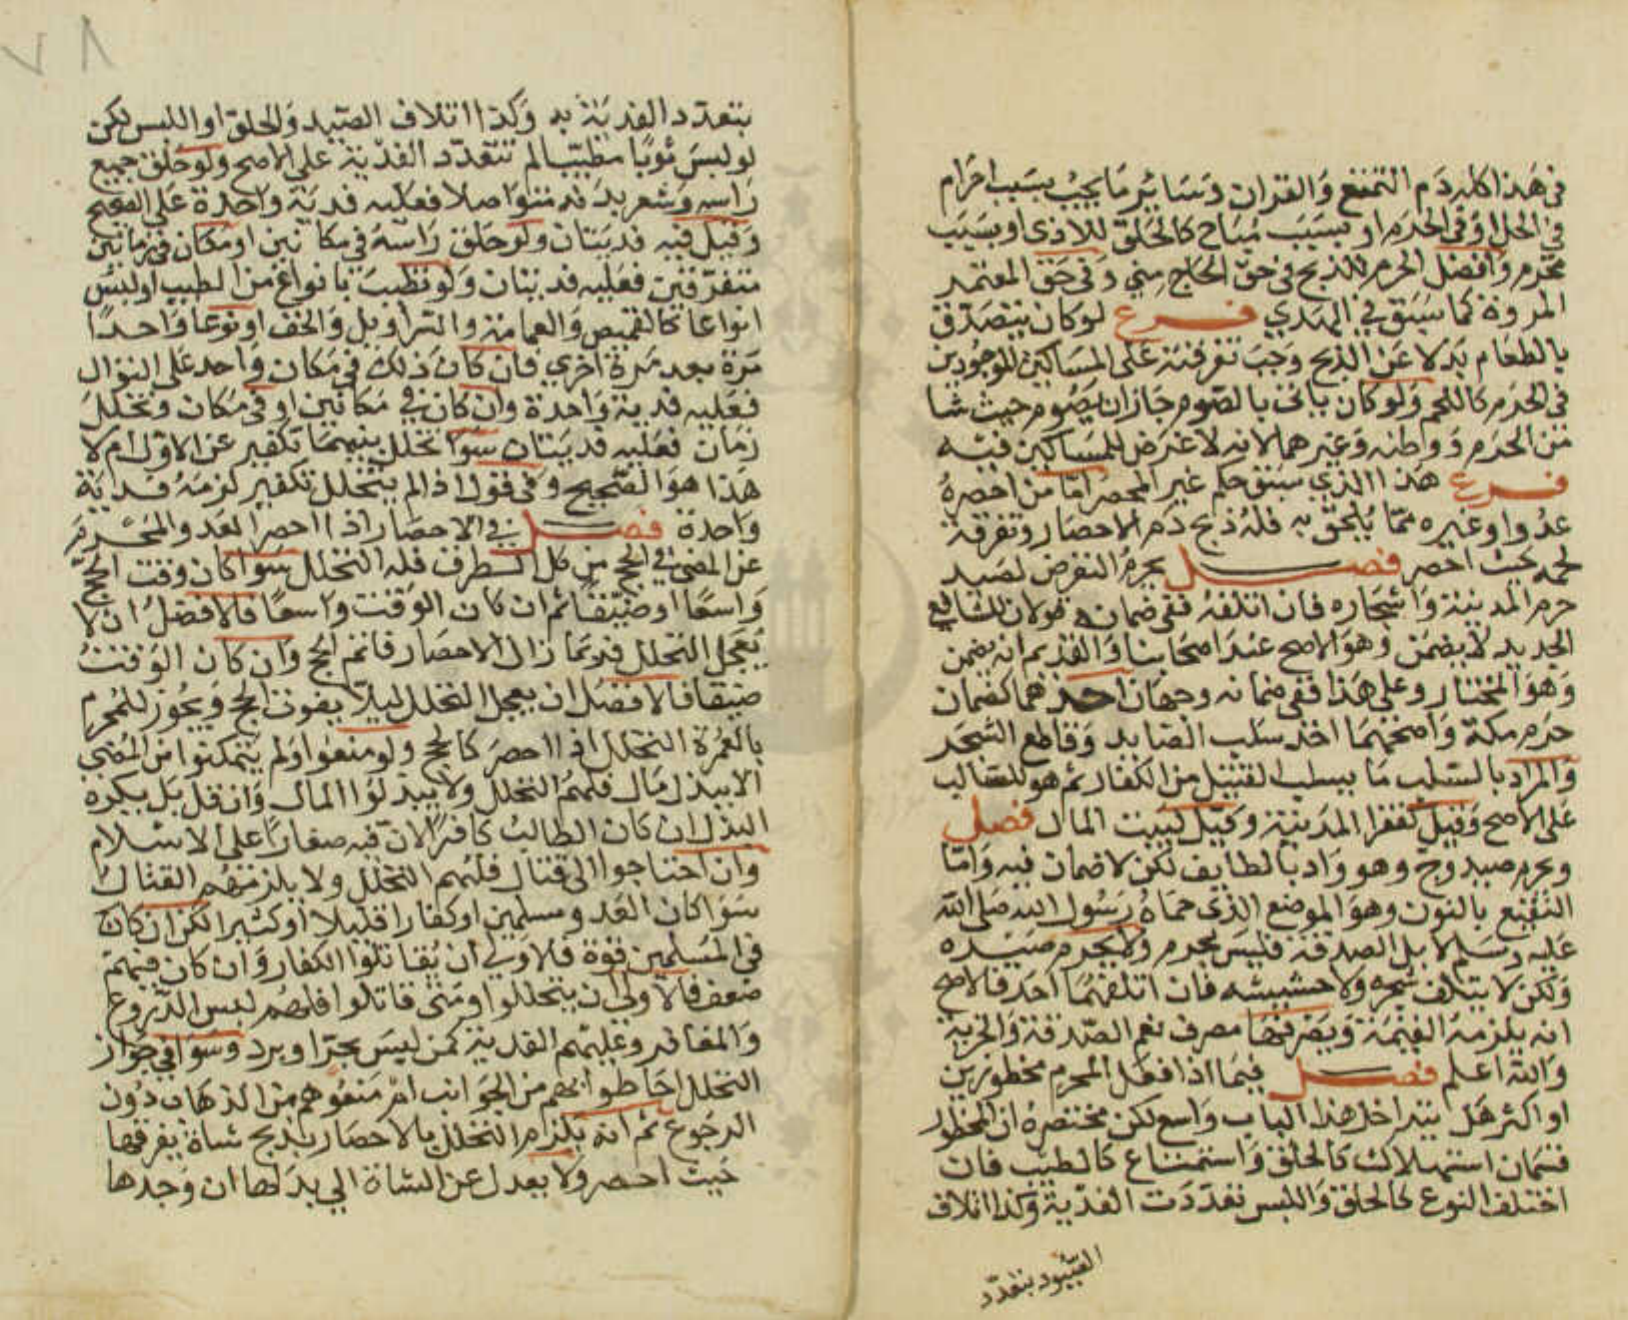 في هذا كله دم التمتع والقران وسائر ما يجب بسبب احرام
في الحل او في الحرم او بسبب مباح كالحلق للاذى او بسبب
محرم وافضل الحرم للذبح في حق الحاج منى وفي حق المعتمر
المروة كما سبق في الهدي فرع لو كان يتصدق
بالطعام بدلا عن الذبح وجب تفرقته على المساكين الموجودين
في الحرم كاللحم ولو كان ياتي بالصوم جاز ان يصوم حيث شا
من الحرم ووطنه وغيرهما لانه لا غرض للمساكين فيه
فرع هذا الذي سبق حكم غير المحصر اما من احصره
عدو او غيره مما يلحق به فله ذبح دم الاحصار وتفرقة
لحمه حيث احصر فصل يحرم التعرض لصيد
حرم المدينة واشجاره فان اتلفه ففي ضمانه قولان للشافعي
الجديد لا يضمن وهو الاصح عند اصحابنا والقديم انه يضمن
وهو المختار وعلى هذا ففي ضمانه وجهان احدهما كضمان
حرم مكة واصحهما اخذ سلب الصايد وقاطع الشجر
والمراد بالسلب ما يسلب القتيل من الكفار ثم هو للسالب
على الاصح وقيل لفقرا المدينة وقيل لبيت المال فصل
ويحرم صيد وج وهو واد بالطايف لكن لا ضمان فيه واما
النقيع بالنون وهو الموضع الذي حماه رسول الله صلى الله
عليه وسلم لابل الصدقة فليس بحرم ولا يحرم صيده
ولكن لا يتلف شجره ولا حشيشه فان اتلفهما احد فالاصح
انه يلزمه القيمة ويصرفها مصرف نعم الصدقة والجزية
والله اعلم فصل فيما اذا فعل المحرم محظورين
او اكثر هل يتداخل هذا الباب واسع لكن مختصره ان المحظور
قسمان استهلاك كالحلق واستمتاع كالطيب فان
اختلف النوع كالحلق واللبس تعددت الفدية وكذا اتلاف
الصيود بتعدد
٧٨
بتعدد الفدية به وكذا اتلاف الصيد والحلق او اللبس لكن
لو لبس ثوبا مطيبا لم تتعدد الفدية على الاصح ولو حلق جميع
راسه وشعر بدنه متواصلا فعليه فدية واحدة على الصحيح
وقيل فيه فديتان ولو حلق راسه في مكانين او مكان في زمانين
متفرقين فعليه فديتان ولو تطيب بانواع من الطيب او لبس
انواعا كالقميص والعمامة والسراويل والخف او نوعا واحدا
مرة بعد مرة اخري فان كان ذلك في مكان واحد على التوال
فعليه فدية واحدة وان كان في مكانين او في مكان وتخلل
زمان فعليه فديتان سوا تخلل بينهما تكفير عن الاول ام لا
هذا هو الصحيح وفي قول اذا لم يتخلل تكفير لزمه فدية
واحدة فصل في الاحصار اذا احصر العدو المحرم
عن المضي في الحج من كل الطرق فله التحلل سوا كان وقت الحج
واسعا او ضيقا ثم ان كان الوقت واسعا فالافضل ان لا
يعجل التحلل فربما زال الاحصار فاتم الحج وان كان الوقت
ضيقا فالافضل ان يعجل التحلل ليلا يفوت الحج ويجوز للمحرم
بالعمرة التحلل اذا احصر كالحج ولو منعوا ولم يتمكنوا من المضي
الا ببذل مال فلهم التحلل ولا يبذلوا المال وان قل بل يكره
البذل ان كان الطالب كافرا لان فيه صغارا على الاسلام
وان احتاجوا الى قتال فلهم التحلل ولا يلزمهم القتال
سوا كان العدو مسلمين او كفارا قليلا او كثيرا لكن ان كان
في المسلمين قوة فلاولي ان يقاتلوا الكفار وان كان فيهم
ضعف فالاولى ان يتحللوا ومتى قاتلوا فلهم لبس الدروع
والمغافر وعليهم الفدية كمن لبس بحر او برد وسوا في جواز
التحلل احاطوا بهم من الجوانب ام منعوهم من الذهاب دون
الرجوع ثم انه يلزم التحلل بالاحصار بذبح شاة يفرقها
حيث احصر ولا يعدل عن الشاة الي بدلها ان وجدها